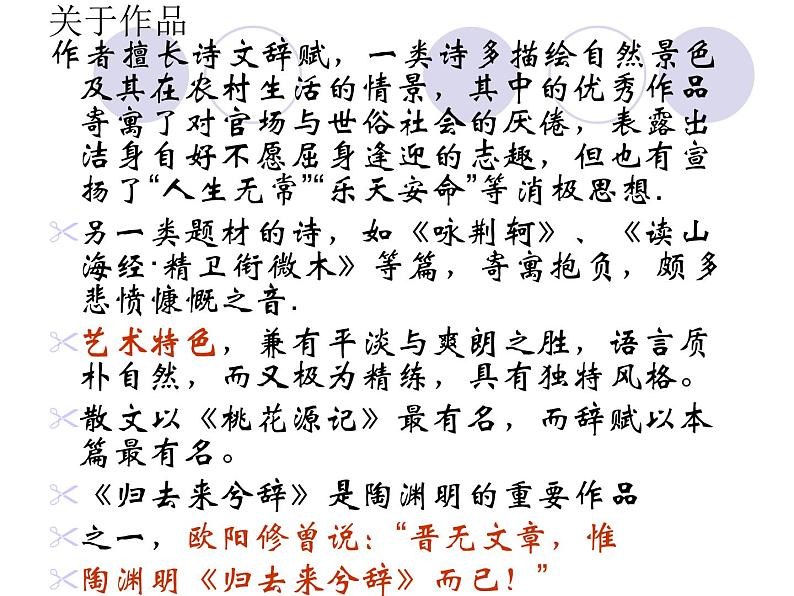 关于作品
作者擅长诗文辞赋，一类诗多描绘自然景色
及其在农村生活的情景，其中的优秀作品
寄寓了对官场与世俗社会的厌倦，表露出
洁身自好不愿屈身逢迎的志趣，但也有宣
扬了“人生无常”“乐天安命”等消极思想.
另一类题材的诗，如《咏荆轲》、《读山
海经·精卫衔微木》等篇，寄寓抱负，颇多
悲愤慷慨之音.
艺术特色，兼有平淡与爽朗之胜，语言质
朴自然，而又极为精练，具有独特风格。
散文以《桃花源记》最有名，而辞赋以本
篇最有名。
《归去来兮辞》是陶渊明的重要作品
之一，欧阳修曾说：“晋无文章，惟
陶渊明《归去来兮辞》而已！”